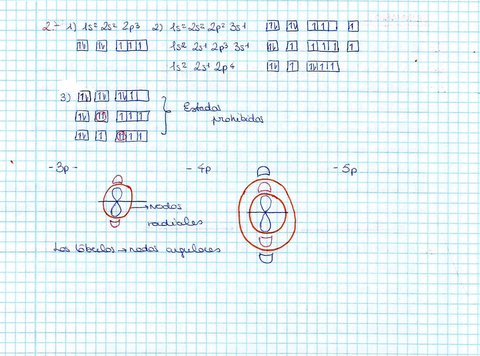 2.- 1) 1s² 2s² 2p³ 2) 1s² 2s² 2p² 3s¹
1s² 2s¹ 2p³ 3s¹
1s² 2s¹ 2p⁴
3)
Estados
prohibidos
-3p- -4p -5p
nodos
radiales
Los lóbulos → nodos angulares